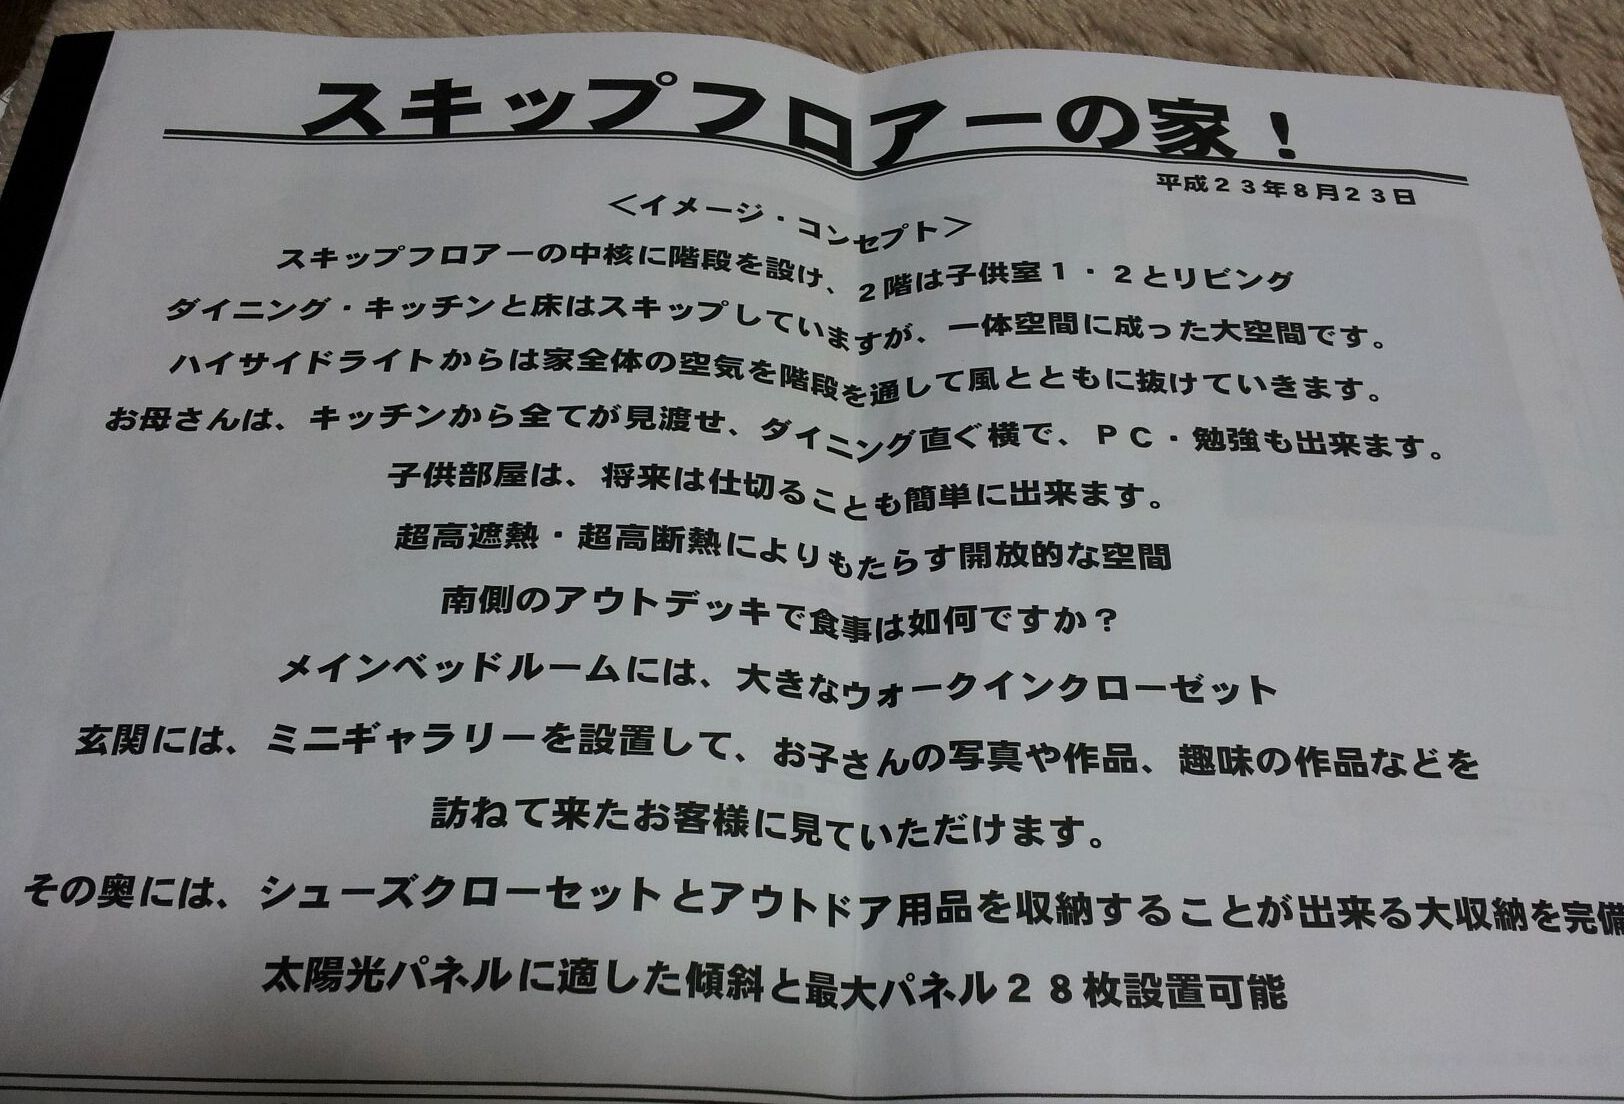 スキップフロアーの家！
平成２３年８月２３日
＜イメージ・コンセプト＞
スキップフロアーの中核に階段を設け、２階は子供室１・２とリビング
ダイニング・キッチンと床はスキップしていますが、一体空間に成った大空間です。
ハイサイドライトからは家全体の空気を階段を通して風とともに抜けていきます。
お母さんは、キッチンから全てが見渡せ、ダイニング直ぐ横で、ＰＣ・勉強も出来ます。
子供部屋は、将来は仕切ることも簡単に出来ます。
超高遮熱・超高断熱によりもたらす開放的な空間
南側のアウトデッキで食事は如何ですか？
メインベッドルームには、大きなウォークインクローゼット
玄関には、ミニギャラリーを設置して、お子さんの写真や作品、趣味の作品などを
訪ねて来たお客様に見ていただけます。
その奥には、シューズクローセットとアウトドア用品を収納することが出来る大収納を完備
太陽光パネルに適した傾斜と最大パネル２８枚設置可能